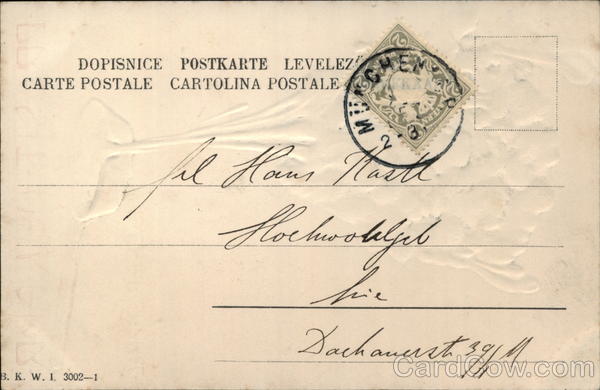 DOPISNICE POSTKARTE LEVELEZŐ
CARTE POSTALE CARTOLINA POSTALE
MÜNCHEN
Hans Kastl
Hochwohlgeb
hie
Dachauerstr 39/
B. K. W. I. 3002—1
CardCow.com